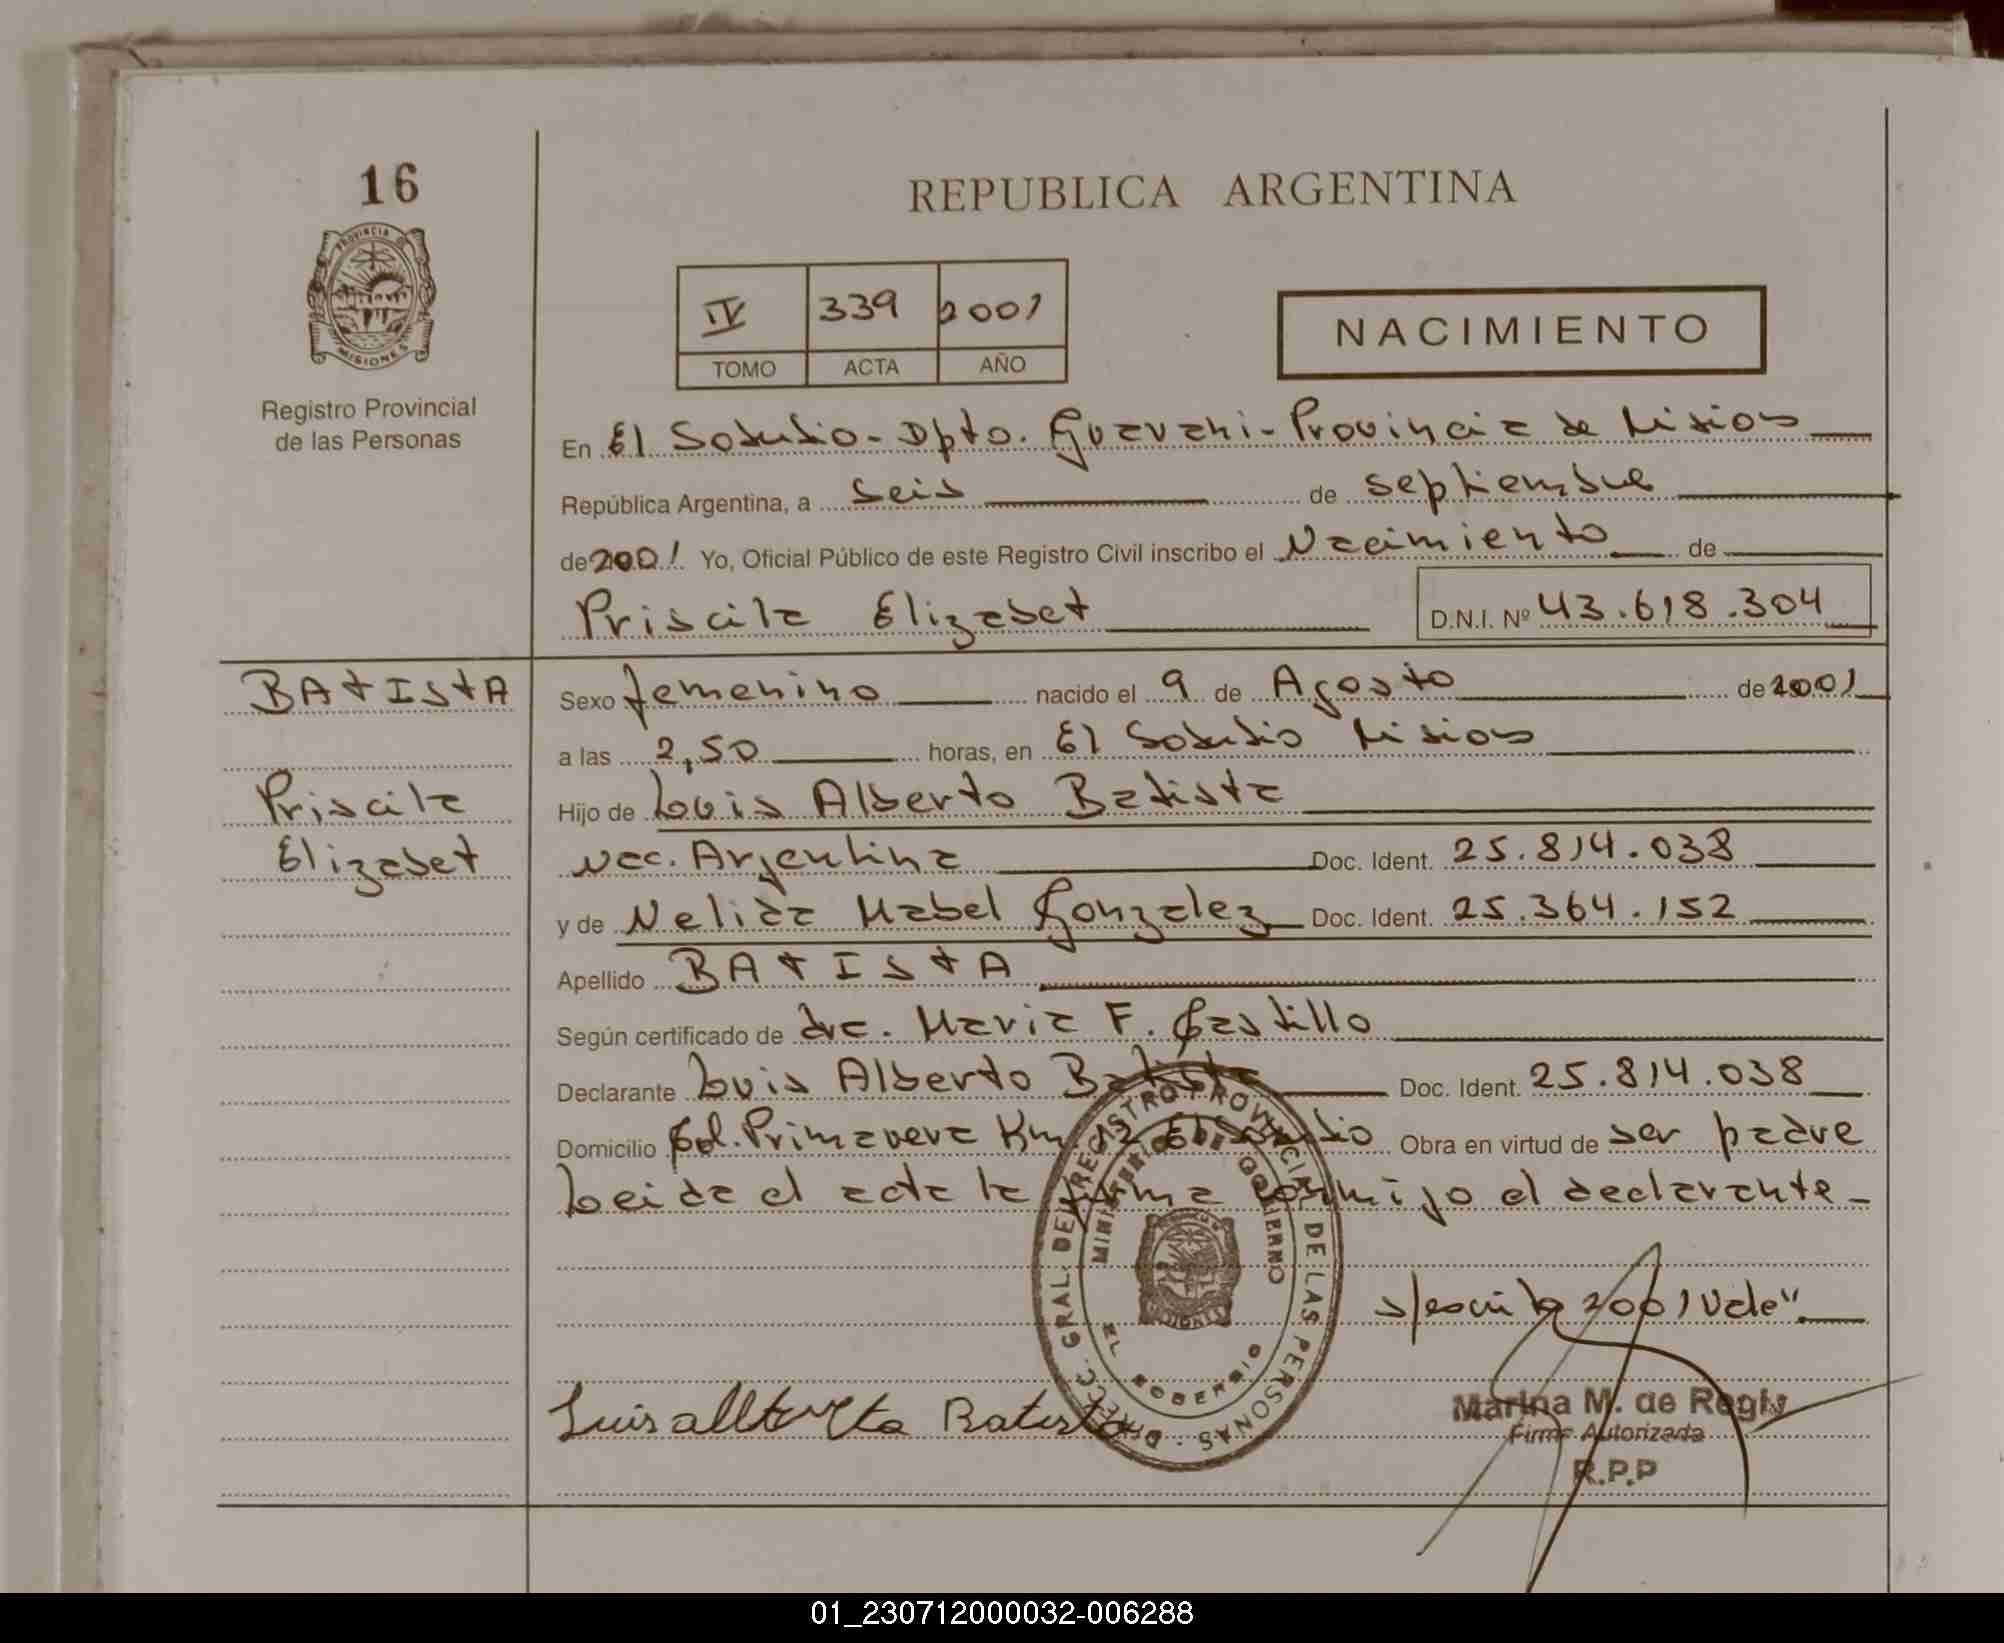 16
PROVINCIA DE
MISIONES
Registro Provincial
de las Personas
REPUBLICA ARGENTINA
IV 339 2001
TOMO ACTA AÑO
NACIMIENTO
En El Soberbio - Dpto. Guarani - Provincia de Misiones
República Argentina, a seis de septiembre
de 2001 Yo, Oficial Público de este Registro Civil inscribo el Nacimiento de
Priscila Elizabet D.N.I. Nº 43.618.304
BATISTA
Priscila
Elizabet
Sexo femenino nacido el 9 de Agosto de 2001
a las 2,50 horas, en El Soberbio Misiones
Hijo de Luis Alberto Batista
nac. Argentina Doc. Ident. 25.814.038
y de Nelida Mabel Gonzalez Doc. Ident. 25.364.152
Apellido BATISTA
Según certificado de dra. Maria F. Castillo
Declarante Luis Alberto Batista Doc. Ident. 25.814.038
Domicilio Col. Primavera Km 12 El Soberbio Obra en virtud de ser padre
Leida el acta la firma conmigo el declarante -
s/escrito 2001 Vale"
DIREC. GRAL. DEL REGISTRO PROVINCIAL DE LAS PERSONAS
MINISTERIO DE GOBIERNO
EL SOBERBIO
Luis Batista
Marina M. de Regly
Firma Autorizada
R.P.P
01_230712000032-006288